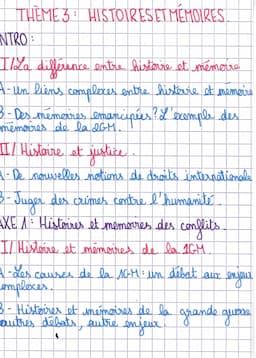 THÈME 3 : HISTOIRES ET MÉMOIRES.
NTRO :
I/ La différence entre histoire et mémoire
A - un liens complexes entre histoire et mémoire
B - Des mémoires émancipées ? L'exemple des
mémoires de la 2GM.
II/ Histoire et justice.
A - De nouvelles notions de droits internationale
B - Juger des crimes contre l'humanité.
AXE 1 : Histoires et mémoires des conflits.
I/ Histoire et mémoires de la 1GM
A - Les causes de la 1GM : un débat aux enjeux
omplexes.
B - Histoires et mémoires de la grande guerre
autres débats, autre enjeux.